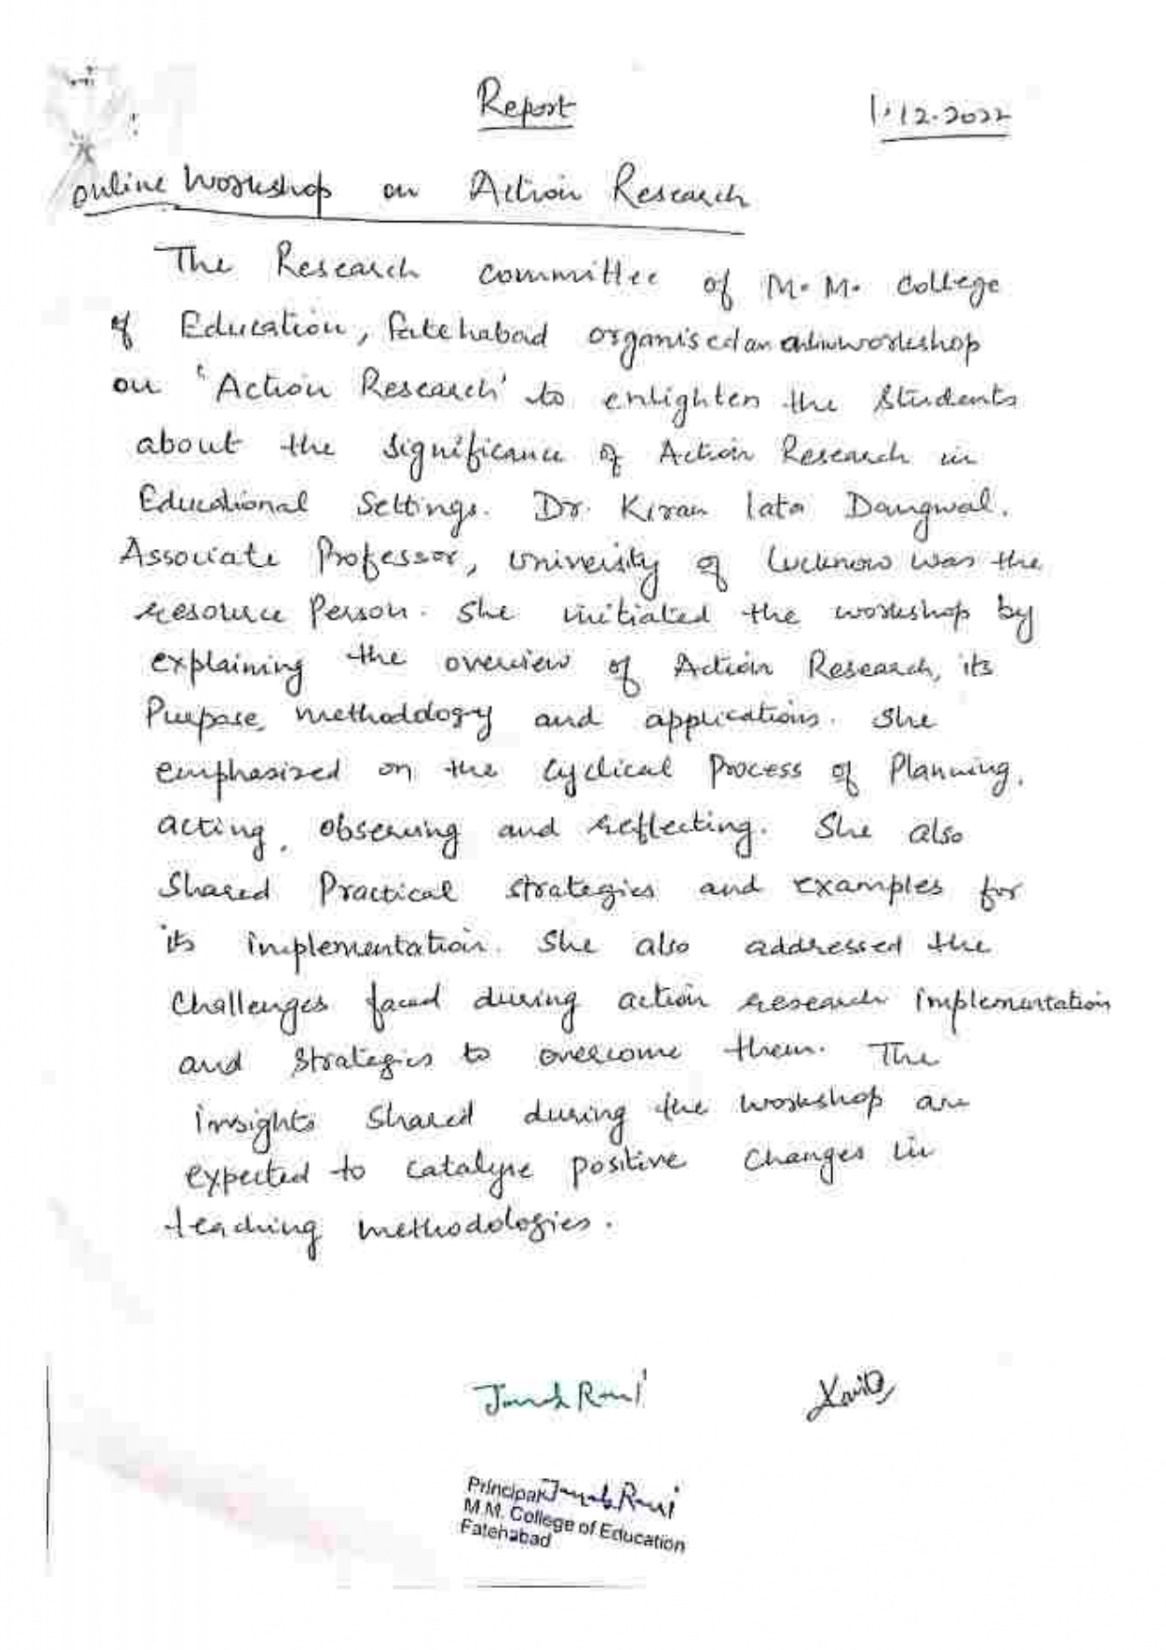 Report
1.12.2022
Online Workshop on Action Research
The Research committee of M. M. College
of Education, Fatehabad organised an online workshop
on 'Action Research' to enlighten the Students
about the significance of Action Research in
Educational Settings. Dr. Kiran lata Dangwal.
Associate Professor, University of Lucknow was the
resource Person. She initiated the workshop by
explaining the overview of Action Research, its
Purpose, methodology and applications. She
emphasized on the Cyclical Process of Planning,
acting, observing and reflecting. She also
Shared Practical strategies and examples for
its implementation. She also addressed the
Challenges faced during action research implementation
and Strategies to overcome them. The
insights Shared during the workshop are
expected to catalyse positive Changes in
teaching methodologies.
Principal
M.M. College of Education
Fatehabad